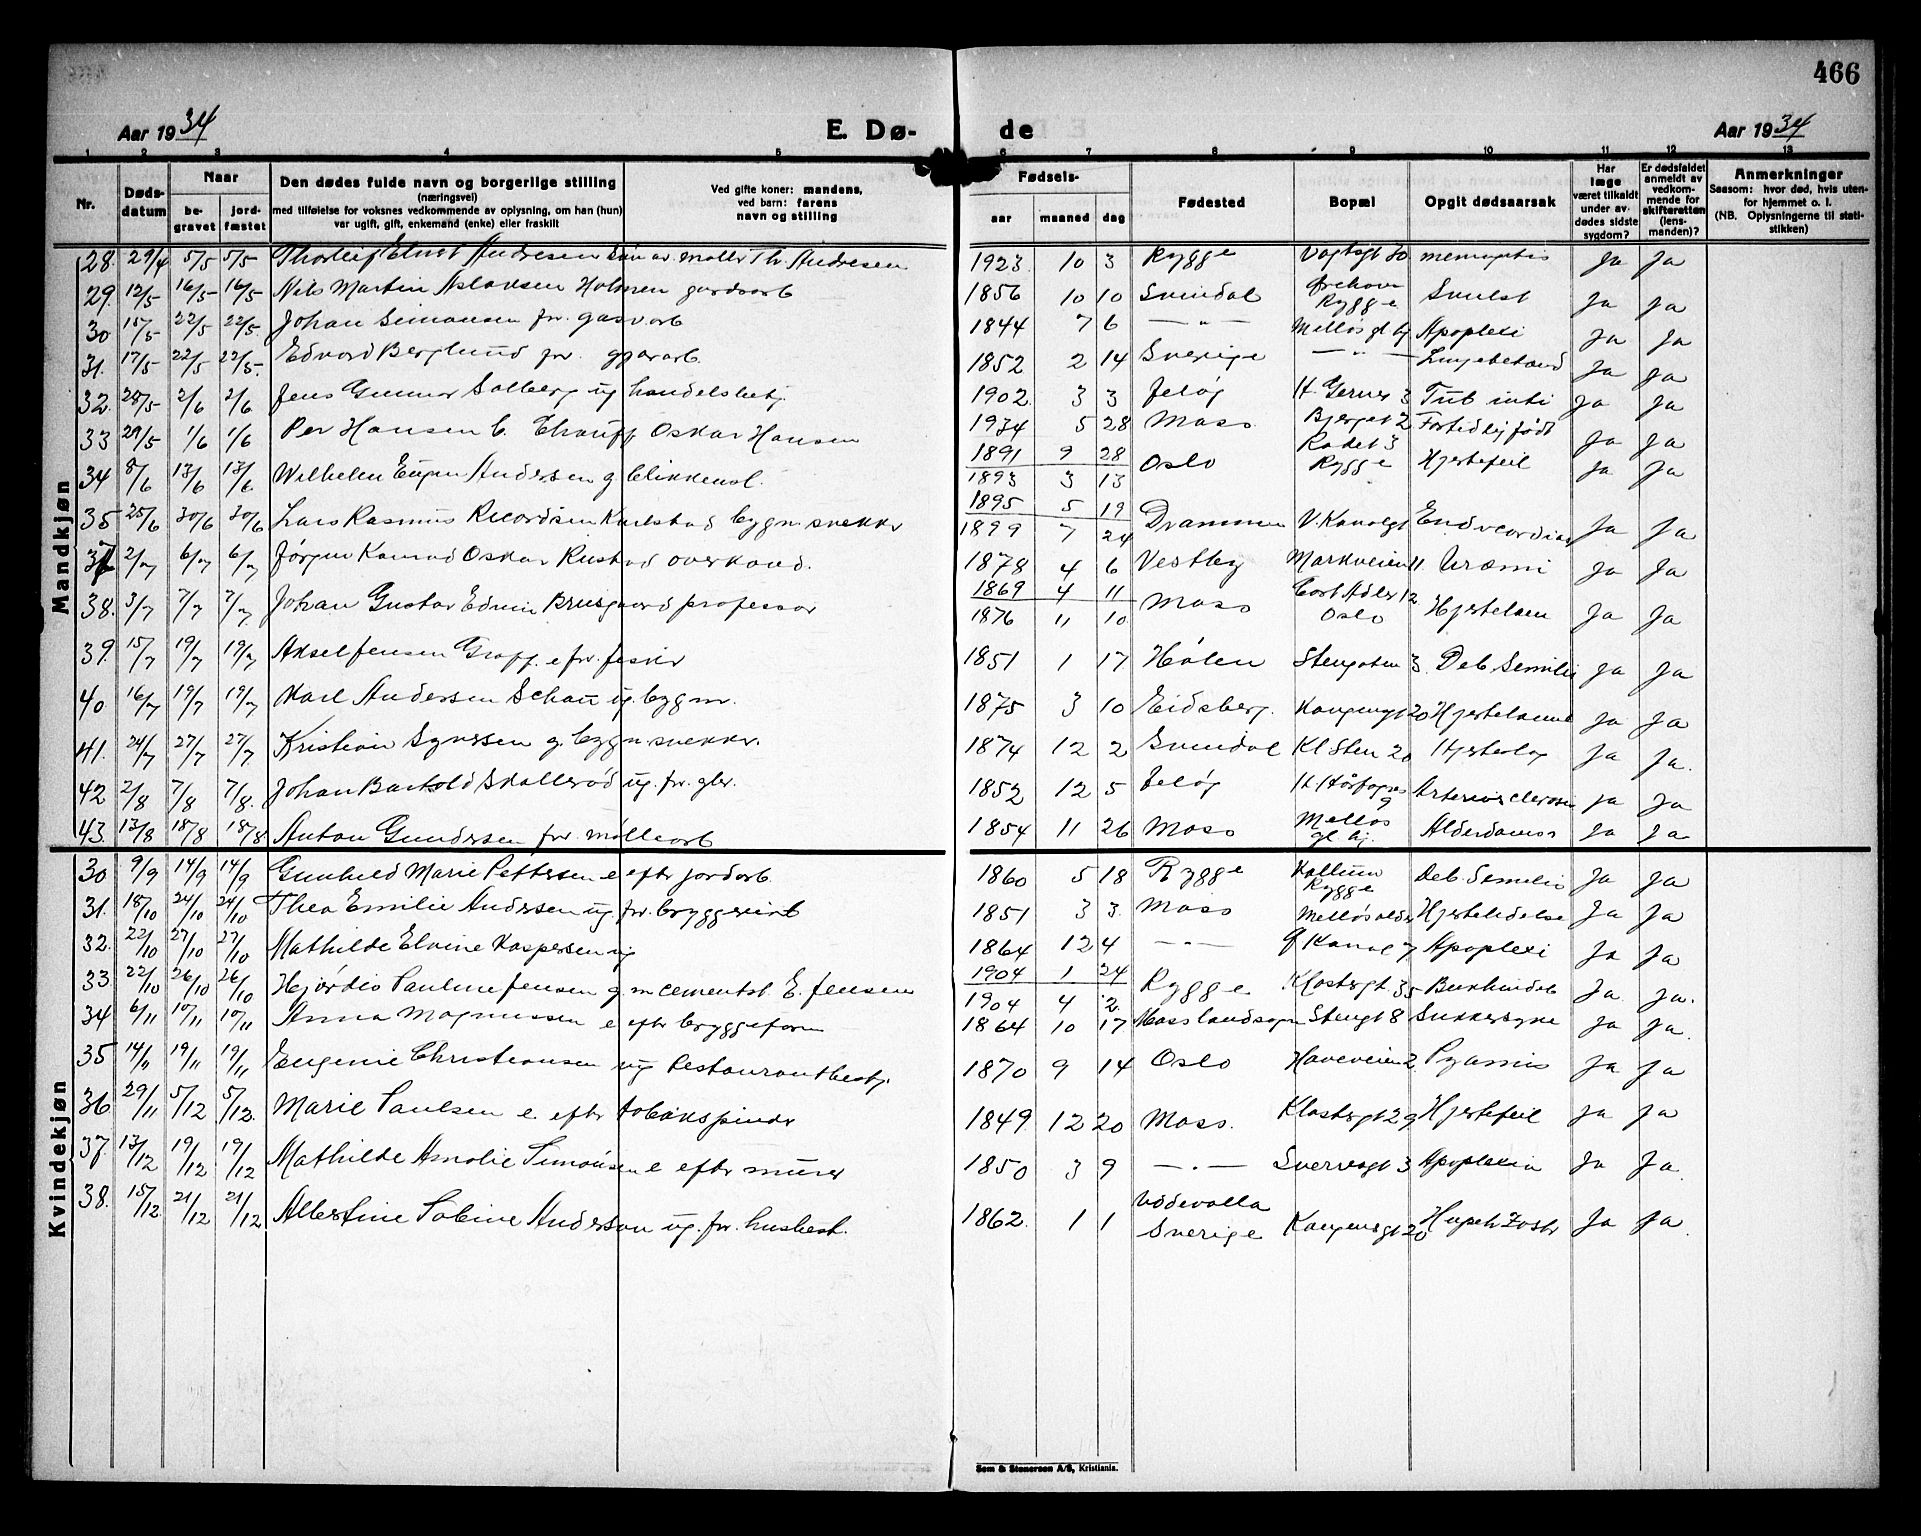 466
Aar 1934 E. Dø- de Aar 1934
1 2 3 4 5 6 7 8 9 10 11 12 13
Nr. Døds-datum Naar be-gravet jord-fæstet
Den dødes fulde navn og borgerlige stilling
(næringsvei)
med tilføielse for voksnes vedkommende av oplysning, om han (hun)
var ugift, gift, enkemand (enke) eller fraskilt
Ved gifte koner: mandens,
ved barn: farens
navn og stilling
Fødsels-
aar maaned dag
Fødested Bopæl Opgit dødsaarsak
Har læge været tilkaldt under av-dødes sidste sygdom?
Er dødsfaldet anmeldt av vedkom-mende for skifteretten (lens-manden)?
Anmerkninger
Saasom: hvor død, hvis uten-
for hjemmet o. l.
(NB. Oplysningerne til stati-
stikken)
Mandkjøn
28. 29/4 5/5 5/5 Thorleif Ernst Andresen Søn av møller Th. Andresen 1923 10 3 Rygge Vogtsgt 30 Ja Ja
29. 12/5 16/5 16/5 Nils Martin Aslaksen Holmen gardsarb 1856 10 10 Svindal Rygge Ja Ja
30 15/5 22/5 22/5. Johan Simonsen fr. gasv arb 1844 7 6 — „ — Melløs gl hj Apoplexi Ja Ja
31. 17/5 22/5 22/5. Edvard Berglund fr. 1852 2 14 Sverige — „ — Lungebetænd Ja Ja
32. 28/5 2/6 2/6 Jens Gunnar Solberg ug handelsbetj. 1902 3 3 Jeløy H. Gernes 3 Tub. Ja Ja
33 29/5 1/6 1/6 Per Hansen b. Chauff Oskar Hansen 1934 5 28 Moss Bjerget 2 Fortidlig født Ja Ja
34 8/6 13/6 13/6 Wilhelm Eugen Andersen g blikkensl. 1891 9 28 1893 3 13 Oslo Rygge Hjertefeil Ja Ja
35 25/6 30/6 30/6 Lars Rasmus Ricardsen Karlstad bygn. snekker 1895 5 19 1899 7 24 Drammen V. Kanalgt Ja Ja
37 2/7 6/7 6/7 Jørgen Konrad Oskar Rustad overkond. 1878 4 6 Vestby Markveien 11. Uræmi Ja Ja
38. 3/7 7/7 7/7 Johan Gustav Edvin Brusgaard professor 1869 4 11 1876 11 10 Moss Cort Adler 12 Oslo Hjertelam Ja Ja
39. 15/7 19/7 19/7 Aksel Jensen e fr. fisker 1851 1 17 Hølen Stengaten 3. Deb. Senilis Ja Ja
40 16/7 19/7 19/7 Karl Andersen Schau ug. bygm. 1875 3 10 Eidsberg. Kongensgt 20 Hjertelamm Ja Ja
41. 24/7 27/7 27/7 Kristian Syversen g. bygn snekker. 1874 12 2 Svindal Kl Sten 20 Hjerteslag Ja Ja.
42 2/8 7/8 7/8. Johan Bartold Skallerød ug. fr. gbr. 1852 12 5 Jeløy H. Hårfagres 9 Arteriosclerosen Ja Ja
43. 13/8 18/8 18/8 Anton Gundersen fr. møllearb 1854 11 26 Moss Melløs gl hj. Alderdomss Ja Ja
Kvindekjøn
30 9/9 14/9 14/9 Gunhild Marie Pettersen e efter jordarb 1860 5 18 Rygge Kallum Rygge Deb. Senilis Ja Ja
31. 18/10 24/10 24/10 Thea Emilie Andersen ug. fr. bryggeriarb 1851 3 3. Moss Melløs alder Hjertelidelse Ja Ja
32. 22/10 27/10 27/10 Mathilde Elvine Kaspersen ug 1864 12 4 — „ — Kanal 7 Apoplexi Ja Ja
33. 22/10 26/10 26/10 Hjørdis Pauline Jensen g m cementst. E. Jensen 1904 1 24 1904 4 2. Rygge Klostergt 35 Bukhindeb Ja Ja.
34 6/11 10/11 10/11 Anna Magnussen e efter bryggeform 1864 10 17 Moss landsogn Stengt 8 Sukkersyke Ja Ja.
35 14/11 19/11 19/11 Eugenie Christiansen ug Restaurantbesty. 1870 9 14 Oslo Haveveien 2 Pyamis Ja Ja
36 29/11 5/12 5/12. Marie Paulsen e efter tobakspinder 1849 12 20 Moss. Klostergt 29 Hjertefeil Ja Ja
37. 13/12 19/12 19/12 Mathilde Amalie Simonsen e efter murer 1850 3 9 — „ — Sverresgt 3 Apoplexia Ja Ja.
38. 15/12. 21/12 21/12 Albertine Sabine Anderson ug. fr. husbest. 1862. 1 1 Uddevalla Sverige Kongensgt 20 Ja Ja.
Sem & Stenersen A/S, Kristiania.